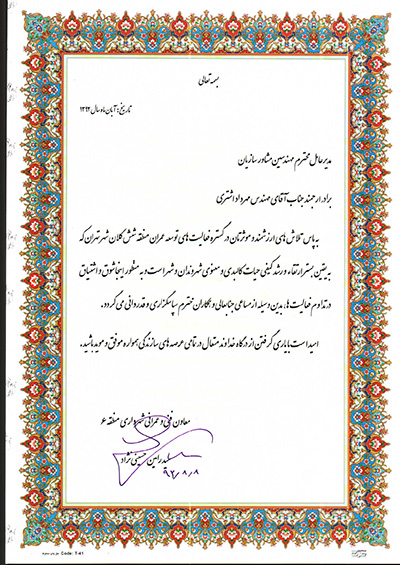 بسمه تعالی
تاریخ: آبان ماه سال ۱۳۹۲
مدیرعامل محترم مهندسین مشاور سازیان
برادر ارجمند جناب آقای مهندس مهرداد اشتری
به پاس تلاش های ارزشمند و موثرتان در گستره فعالیت های توسعه عمران منطقه شش کلان شهر تهران که
به یقین بستر ارتقاء و رشد کیفی حیات کالبدی و معنوی شهروندان و شهر است و به منظور ایجاد شوق و اشتیاق
در تداوم فعالیت ها، بدین وسیله از مساعی جنابعالی و همکاران محترم سپاسگزاری و قدردانی می گردد.
امید است با یاری گرفتن از درگاه خداوند متعال در تمامی عرصه های سازندگی همواره موفق و موید باشید.
معاون فنی و عمرانی شهرداری منطقه ۶
سید رامین حسینی نژاد
۹۲/۸/۸
Code: T-41